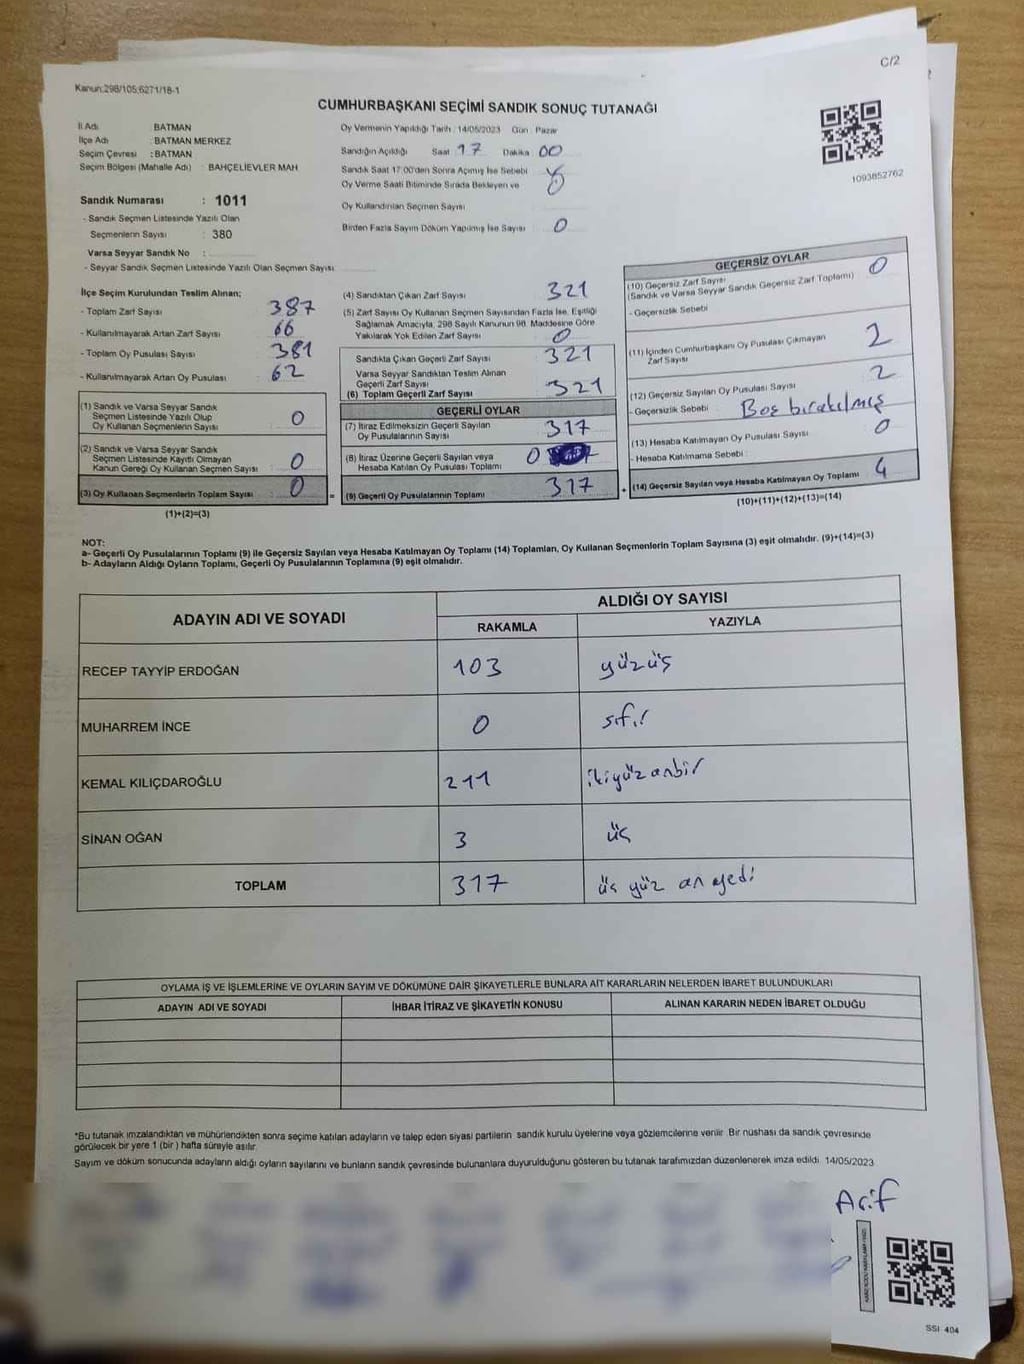 C/2
Kanun:298/105;6271/18-1
CUMHURBAŞKANI SEÇİMİ SANDIK SONUÇ TUTANAĞI
1093852762
İl Adı BATMAN
İlçe Adı : BATMAN MERKEZ
Seçim Çevresi : BATMAN
Seçim Bölgesi (Mahalle Adı) : BAHÇELİEVLER MAH
Sandık Numarası : 1011
- Sandık Seçmen Listesinde Yazılı Olan
Seçmenlerin Sayısı : 380
Varsa Seyyar Sandık No :
- Seyyar Sandık Seçmen Listesinde Yazılı Olan Seçmen Sayısı
Oy Vermenin Yapıldığı Tarih : 14/05/2023 Gün : Pazar
Sandığın Açıldığı Saat 17 Dakika 00
Sandık Saat 17:00'den Sonra Açımış İse Sebebi
Oy Verme Saati Bitiminde Sırada Bekleyen ve
Oy Kullandırılan Seçmen Sayısı
Birden Fazla Sayım Döküm Yapılmış İse Sayısı 0
İlçe Seçim Kurulundan Teslim Alınan;
- Toplam Zarf Sayısı 387
- Kullanılmayarak Artan Zarf Sayısı 66
- Toplam Oy Pusulası Sayısı 381
- Kullanılmayarak Artan Oy Pusulası 62
(1) Sandık ve Varsa Seyyar Sandık
Seçmen Listesinde Yazılı Olup
Oy Kullanan Seçmenlerin Sayısı 0
(2) Sandık ve Varsa Seyyar Sandık
Seçmen Listesinde Kayıtlı Olmayan
Kanun Gereği Oy Kullanan Seçmen Sayısı 0
(3) Oy Kullanan Seçmenlerin Toplam Sayısı 0
(1)+(2)=(3)
(4) Sandıktan Çıkan Zarf Sayısı 321
(5) Zarf Sayısı Oy Kullanan Seçmen Sayısından Fazla İse, Eşitliği
Sağlamak Amacıyla, 298 Sayılı Kanunun 98. Maddesine Göre
Yakılarak Yok Edilen Zarf Sayısı 0
Sandıkta Çıkan Geçerli Zarf Sayısı 321
Varsa Seyyar Sandıktan Teslim Alınan
Geçerli Zarf Sayısı
(6) Toplam Geçerli Zarf Sayısı 321
GEÇERLİ OYLAR
(7) İtiraz Edilmeksizin Geçerli Sayılan
Oy Pusulalarının Sayısı 317
(8) İtiraz Üzerine Geçerli Sayılan veya
Hesaba Katılan Oy Pusulası Toplamı 0
=
(9) Geçerli Oy Pusulalarının Toplamı 317
+
GEÇERSİZ OYLAR
(10) Geçersiz Zarf Sayısı 0
(Sandık ve Varsa Seyyar Sandık Geçersiz Zarf Toplamı)
- Geçersizlik Sebebi
(11) İçinden Cumhurbaşkanı Oy Pusulası Çıkmayan
Zarf Sayısı 2
(12) Geçersiz Sayılan Oy Pusulası Sayısı 2
- Geçersizlik Sebebi Boş bırakılmış
(13) Hesaba Katılmayan Oy Pusulası Sayısı 0
- Hesaba Katılmama Sebebi :
(14) Geçersiz Sayılan veya Hesaba Katılmayan Oy Toplamı 4
(10)+(11)+(12)+(13)=(14)
NOT:
a- Geçerli Oy Pusulalarının Toplamı (9) ile Geçersiz Sayılan veya Hesaba Katılmayan Oy Toplamı (14) Toplamları, Oy Kullanan Seçmenlerin Toplam Sayısına (3) eşit olmalıdır. (9)+(14)=(3)
b- Adayların Aldığı Oyların Toplamı, Geçerli Oy Pusulalarının Toplamına (9) eşit olmalıdır.
ADAYIN ADI VE SOYADI ALDIĞI OY SAYISI
RAKAMLA YAZIYLA
RECEP TAYYİP ERDOĞAN 103 yüzüş
MUHARREM İNCE 0 sıfır
KEMAL KILIÇDAROĞLU 211 ikiyüz onbir
SİNAN OĞAN 3 üç
TOPLAM 317 üç yüz on yedi
OYLAMA İŞ VE İŞLEMLERİNE VE OYLARIN SAYIM VE DÖKÜMÜNE DAİR ŞİKAYETLERLE BUNLARA AİT KARARLARIN NELERDEN İBARET BULUNDUKLARI
ADAYIN ADI VE SOYADI İHBAR İTİRAZ VE ŞİKAYETİN KONUSU ALINAN KARARIN NEDEN İBARET OLDUĞU
*Bu tutanak imzalandıktan ve mühürlendikten sonra seçime katılan adayların ve talep eden siyasi partilerin sandık kurulu üyelerine veya gözlemcilerine verilir. Bir nüshası da sandık çevresinde
görülecek bir yere 1 (bir ) hafta süreyle asılır.
Sayım ve döküm sonucunda adayların aldığı oyların sayılarını ve bunların sandık çevresinde bulunanlara duyurulduğunu gösteren bu tutanak tarafımızdan düzenlenerek imza edildi. 14/05/2023
Arif
SSI 404